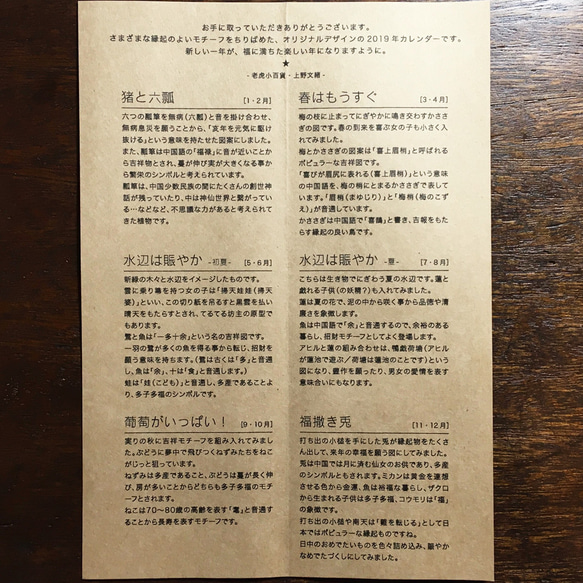 お手に取っていただきありがとうございます。
さまざまな縁起のよいモチーフをちりばめた、オリジナルデザインの2019年カレンダーです。
新しい一年が、福に満ちた楽しい年になりますように。
★
- 老虎小百貨・上野文緒 -
猪と六瓢 [1・2月]
六つの瓢箪を無病(六瓢)と音を掛け合わせ、
無病息災を願うことから、「亥年を元気に駆け
抜ける」という意味を持たせた図案にしました。
また、瓢箪は中国語の「福禄」に音が近いことか
ら吉祥物とされ、蔓が伸び実が大きくなる事か
ら繁栄のシンボルと考えられています。
瓢箪は、中国少数民族の間にたくさんの創世神
話が残っていたり、中は神仙世界と繋がってい
る…などなど、不思議な力があると考えられてき
た植物です。
春はもうすぐ [3・4月]
梅の枝に止まってにぎやかに鳴き交わすかささ
ぎの図です。春の到来を喜ぶ女の子も小さく入
れてみました。
梅とかささぎの図案は「喜上眉梢」と呼ばれる
ポピュラーな吉祥図です。
「喜びが眉尻に表れる(喜上眉梢)」という意味
の中国語を、梅の梢にとまるかささぎで表して
います。「眉梢(まゆじり)」と「梅梢(梅のこず
え)」が音通しています。
かささぎは中国語で「喜鵲」と書き、吉報をもた
らす縁起の良い鳥です。
水辺は賑やか -初夏- [5・6月]
新緑の木々と水辺をイメージしたものです。
雲に乗り幕を持つ女の子は「掃天娃娃(掃天
婆)」といい、この切り紙を吊るすと黒雲を払い
晴天をもたらすとされ、てるてる坊主の原型で
もあります。
鷺と魚は「一多十余」という名の吉祥図です。
一羽の鷺が多くの魚を得る事から転じ、招財を
願う意味を持ちます。(鷺は古くは「多」と音通
し、魚は「余」、十は「食」と音通します。)
蛙は「娃(こども)」と音通し、多産であることよ
り、多子多福のシンボルです。
水辺は賑やか -夏- [7・8月]
こちらは生き物でにぎわう夏の水辺です。蓮と
戯れる子供(の妖精?)も入れてみました。
蓮は夏の花で、泥の中から咲く事から品徳や清
廉さを象徴します。
魚は中国語で「余」と音通するので、余裕のある
暮らし、招財モチーフとしてよく登場します。
アヒルと蓮の組み合わせは、鴨戯荷塘(アヒル
が蓮池で遊ぶ/荷塘は蓮池のことです)という
図になり、豊作を願ったり、男女の愛情を表す
意味合いにもなります。
葡萄がいっぱい! [9・10月]
実りの秋に吉祥モチーフを組み入れてみました。
ぶどうに夢中で飛びつくねずみたちをねこ
がじっと狙っています。
ねずみは多産であること、ぶどうは蔓が長く伸
び、房が多いことからどちらも多子多福のモチ
ーフとされます。
ねこは70〜80歳の高齢を表す「耄」と音通す
ることから長寿を表すモチーフです。
福撒き兎 [11・12月]
打ち出の小槌を手にした兎が縁起物をたくさ
ん出して、来年の幸福を願う図にしてみました。
兎は中国では月に済む仙女のお供であり、多産
のシンボルともされます。ミカンは黄金を連想
させる色から金運、魚は裕福な暮らし、ザクロ
から生まれる子供は多子多福、コウモリは「福」
の象徴です。
打ち出の小槌や南天は「難を転じる」として日
本ではポピュラーな縁起ものですね。
日中のおめでたいものを色々詰め込み、賑やか
なめでたづくしにしてみました。